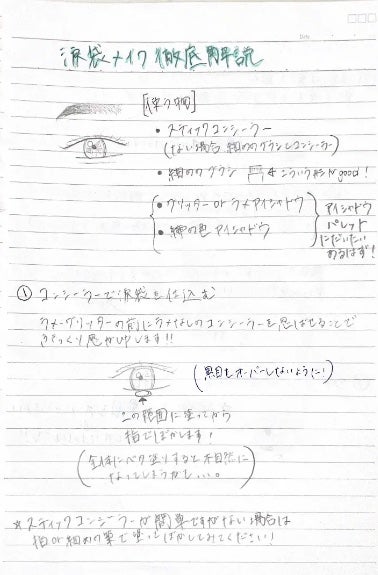 涙袋メイク徹底解説
[使う物]
• スティックコンシーラー
(ない場合 細めのブラシとコンシーラー)
• 細めのブラシ ← こういう形がgood!
• グリッター or ラメアイシャドウ
• 締め色アイシャドウ
アイシャドウ
パレット
にだいたい
あるはず!
① コンシーラーで涙袋を仕込む
ラメ・グリッターの前にラメなしのコンシーラーを忍ばせることで
ぷっくり感がUPします!!
(黒目をオーバーしないように!)
この範囲に塗ってから
指でぼかします!
(全体にベタ塗りすると不自然に
なってしまうかも...。)
☆スティックコンシーラーが簡単ですがない場合は
指or細めの筆で塗ってぼかしてみてください!